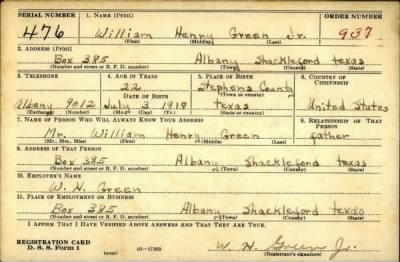 SERIAL NUMBER 1. NAME (Print) ORDER NUMBER
476 William Henry Green Jr. 937
(First) (Middle) (Last)
2. ADDRESS (Print)
Box 385 Albany Shackleford Texas
(Number and street or R. F. D. number) (Town) (County) (State)
3. TELEPHONE 4. AGE IN YEARS 5. PLACE OF BIRTH 6. COUNTRY OF CITIZENSHIP
22 Stephens County
DATE OF BIRTH (Town or county)
Albany 9012 July 3 1918 Texas United States
(Exchange) (Number) (Mo.) (Day) (Yr.) (State or country)
7. NAME OF PERSON WHO WILL ALWAYS KNOW YOUR ADDRESS 8. RELATIONSHIP OF THAT PERSON
Mr. William Henry Green father
(Mr., Mrs., Miss) (First) (Middle) (Last)
9. ADDRESS OF THAT PERSON
Box 385 Albany Shackleford Texas
(Number and street or R. F. D. number) (Town) (County) (State)
10. EMPLOYER'S NAME
W. H. Green
11. PLACE OF EMPLOYMENT OR BUSINESS
Box 385 Albany Shackleford Texas
(Number and street or R. F. D. number) (Town) (County) (State)
I AFFIRM THAT I HAVE VERIFIED ABOVE ANSWERS AND THAT THEY ARE TRUE.
REGISTRATION CARD
D. S. S. Form 1 (over) 16—17105 W. H. Green Jr.
(Registrant's signature)